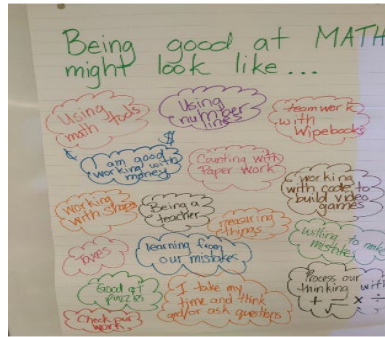 Being good at MATH
might look like...
Using
math tools
Using
number
lines
teamwork
with
Wipebooks
$
I am good
working with
money
Counting with
Paper Work
working
with code to
build video
games
working
with shapes
Being a
teacher
measuring
things
willing to make
mistakes
Taxes
learning from
our mistakes
Process our
thinking with
+ − × ÷
Good at
puzzles
I take my
time and think
and/or ask questions
Check our
work